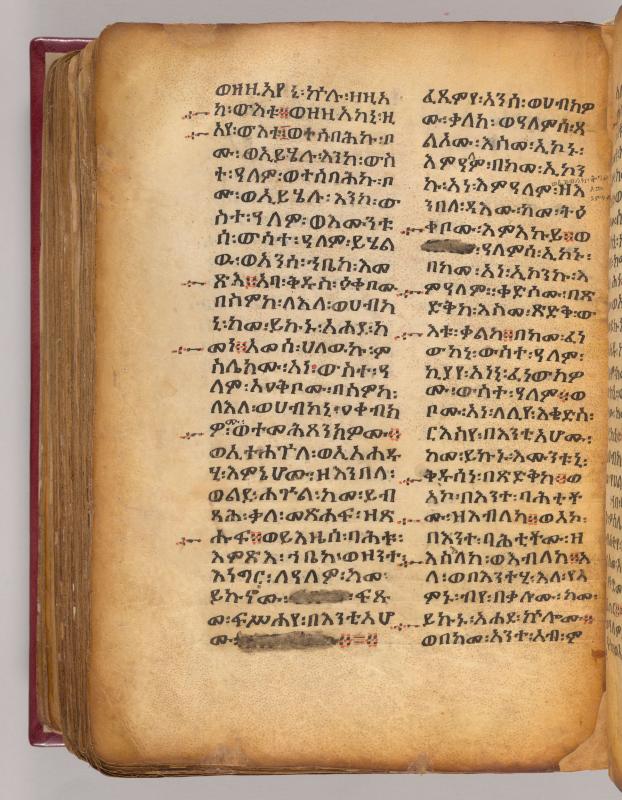 ወዘዚአየ፡ኒ፡ኵሉ፡ዘዚአ
ከ፡ውእቱ፡፡ወዘዚአከኒ፡ዚ
አየ፡ውእቱ፡፡ወተሰባሕኩ፡ቦ
ሙ፡ወኢይሄሉ፡እንከ፡ውስ
ተ፡ዓለም፡ወተሰባሕኩ፡ቦ
ሙ፡ወኢይሄሉ፡እንከ፡ው
ስተ፡ዓለም፡ወእሙንቱ
ሰ፡ውስተ፡ዓለም፡ይሄል
ዉ፡ወአንሰ፡ኀቤከ፡እመ
ጽእ፡፡አባ፡ቅዱስ፡ዕቀቦሙ
በስምከ፡ለእለ፡ወሀብከ
ኒ፡ከመ፡ይኩኑ፡አሐደ፡ከ
መነ፡፡አመሰ፡ሀለውኩ፡ም
ስሌሆሙ፡አነ፡ውስተ፡ዓ
ለም፡አዐቅቦሙ፡በስምከ፡
ለእለ፡ወሀብከኒ፡ዐቀብክ
ዎሙ፡ወተመሕፀንክዎሙ፡፡
ወኢተሐጕለ፡ወኢአሐዱ
ሂ፡እምኔሆሙ፡ዘእንበለ፡
ወልደ፡ሐጕል፡ከመ፡ይብ
ጻሕ፡ቃለ፡መጽሐፍ፡ዘጽ
ሑፍ፡፡ወይእዜሰ፡ባሕቱ፡
እምጽእ፡ኀቤከ፡ወዘንተ፡
እነግር፡ለዓለም፡ከመ፡
ይኩኖሙ፡ ፍጹ
መ፡ፍሥሐየ፡በእንቲአሆ
ሙ፡
ፈጺምየ፡አንሰ፡ወሀብክዎ
ሙ፡ቃለከ፡ወዓለምሰ፡ጸ
ልኦሙ፡እስመ፡ኢኮኑ፡
እምዓለም፡በከመ፡ኢኮን
ኩ፡አነ፡እምዓለም፡ዘእ
ንበለ፡ዳእሙ፡ከመ፡ትዕ
ቀቦሙ፡እምእኩይ፡፡ወ
፡ዓለምሰ፡ኢኮኑ፡
በከመ፡አነ፡ኢኮንኩ፡እ
ምዓለም፡፡ቀድሶሙ፡በጽ
ድቅከ፡እስመ፡ጽድቅ፡ው
እቱ፡ቃልከ፡፡በከመ፡ፈነ
ውከኒ፡ውስተ፡ዓለም፡
ኪያየ፡አነኒ፡ፈነውክዎ
ሙ፡ውስተ፡ዓለም፡፡ወ
ቦሙ፡አነ፡ለሊየ፡እቄድስ፡
ርእስየ፡በእንቲአሆሙ፡
ከመ፡ይኩኑ፡እሙንቱ፡ኒ፡
ቅዱሳነ፡በጽድቅከ፡፡ወ
አኮ፡በእንተ፡ባሕቲቶ
ሙ፡ዝእብለከ፡፡ወአኮ፡
በእንተ፡ባሕቲቶሙ፡ዘ
እስእለከ፡ወእብለከ፡፡አ
ላ፡ወበእንተሂ፡እለ፡የአ
ምኑ፡ብየ፡በቃሎሙ፡ከመ፡
ይኩኑ፡አሐደ፡ኵሎሙ፡፡
ወበከመ፡አንተ፡አብ፡ም